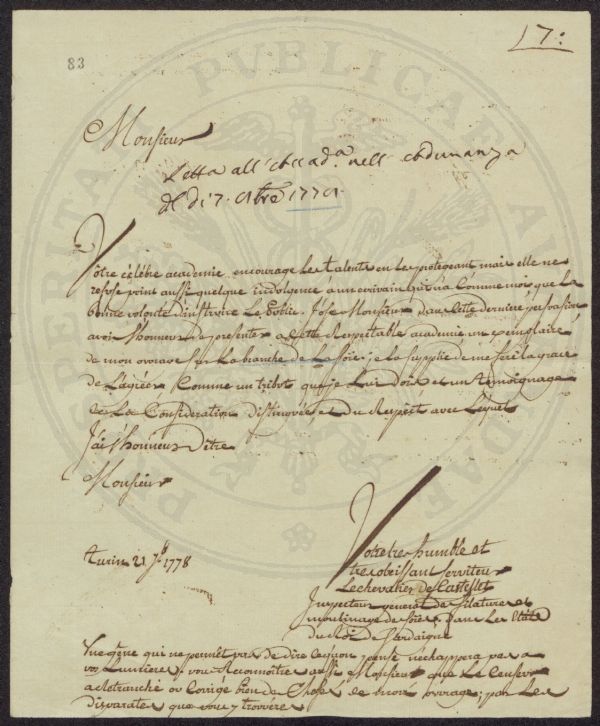 17:
83
PROSPERITATI PUBLICAE AU
Monsieur
Letta all' Accad.a nell' Adunanza
del dì 7. 8bre 1778.
Vôtre célèbre academie encourage Les talents en Les protégeant mais elle ne
refuse point aussi quelque indulgence a un ecrivain qui n'a Comme moi que La
bonne volonté d'instruire Le Public. J'ose Monsieur dans Cette derniere persuasion
avoir L'honneur de presenter a Cette Respectable academie un exemplaire
de mon ouvrage sur La branche de La Soie; et La supplie de me faire La grace
de L'agréer Comme un tribut que je Lui Dois et un temoignage
de La Consideration distinguée, et du Respect avec Lequel
J'ai L'honneur d'être
Monsieur
Votre tres humble et
tres obeissant serviteur
Le chevalier de Castellet
Inspecteur general des filatures et
moulinage des Soies dans Les Etats
du Roi de Sardaigne
Turin 21 7b 1778
Une gêne qui ne permêt pas de dire Ce qu'on pense n'echappera pas a
vos Lumieres; vous Reconnoîtrés aussi Monsieur que Le Censeur
a Retranché ou Corrigé bien de Choses de mon ouvrage; par Les
disparates que vous y trouverés